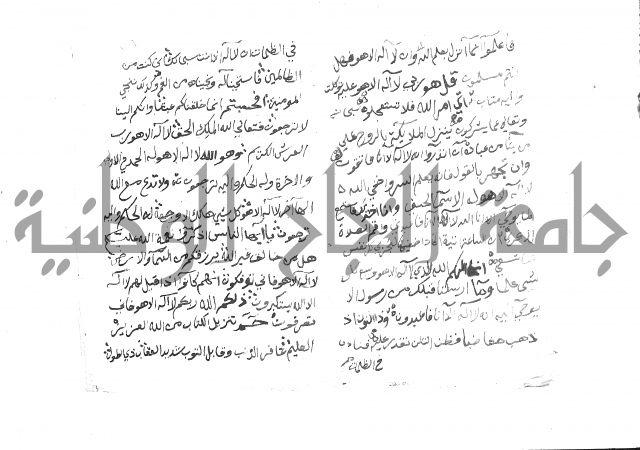 فاعلموا انما انزل بعلم الله وان لا اله الا هو فهل
انتم مسلمون قل هو ربي لا اله الا هو عليه توكلت
واليه متاب اتي امر الله فلا تستعجلوه
وتعالى عما يشركون ينزل الملائكة بالروح على
من يشا من عباده ان انذروا انه لا اله الا انا فاتقون
وان تجهر بالقول فانه يعلم السر واخفى الله
لا اله الا هو له الاسما الحسنى وانا اخترتك فاستمع
لما يوحى انني انا الله لا اله الا انا فاعبدني واقم الصلاة
لذكري ان الساعة اتية اكاد اخفيها لتجزى كل نفس
بما تسعى انما الهكم الله الذي لا اله الا هو وسع كل
شي علما وما ارسلنا قبلك من رسول الا
يوحى اليه انه لا اله الا انا فاعبدون وذا النون اذ
ذهب مغاضبا فظن ان لن نقدر عليه فنادى
في الظلمات
في الظلمات ان لا اله الا انت سبحانك اني كنت من
الظالمين فاستجبنا له ونجيناه من الغم وكذلك ننجي
المومنين افحسبتم انما خلقناكم عبثا وانكم الينا
لا ترجعون فتعالى الله الملك الحق لا اله الا هو رب
العرش الكريم وهو الله لا اله الا هو له الحمد في الاولى
والاخرة وله الحكم واليه ترجعون ولا تدع مع الله
الها اخر لا اله الا هو كل شي هالك الا وجهه له الحكم واليه
ترجعون يا ايها الناس اذكروا نعمة الله عليكم
هل من خالق غير الله يرزقكم من السما والارض
لا اله الا هو فاني توفكون انهم كانوا اذا قيل لهم لا اله
الا الله يستكبرون ذلكم الله ربكم لا اله الا هو فاني
تصرفون حم تنزيل الكتاب من الله العزيز
العليم غافر الذنب وقابل التوب شديد العقاب ذي الطول
جامعة النجاح الوطنية